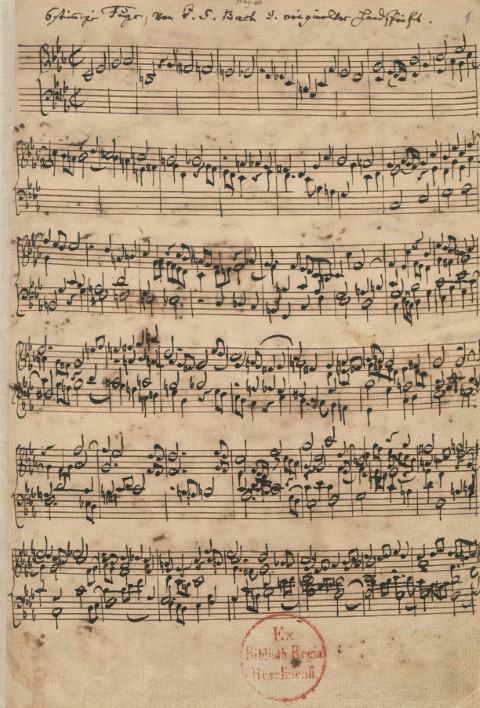 6stimmige Fuge, von J. S. Bach u. origineller Handschrift.
1.
Ex
Biblioth. Regia
Berolinensi.